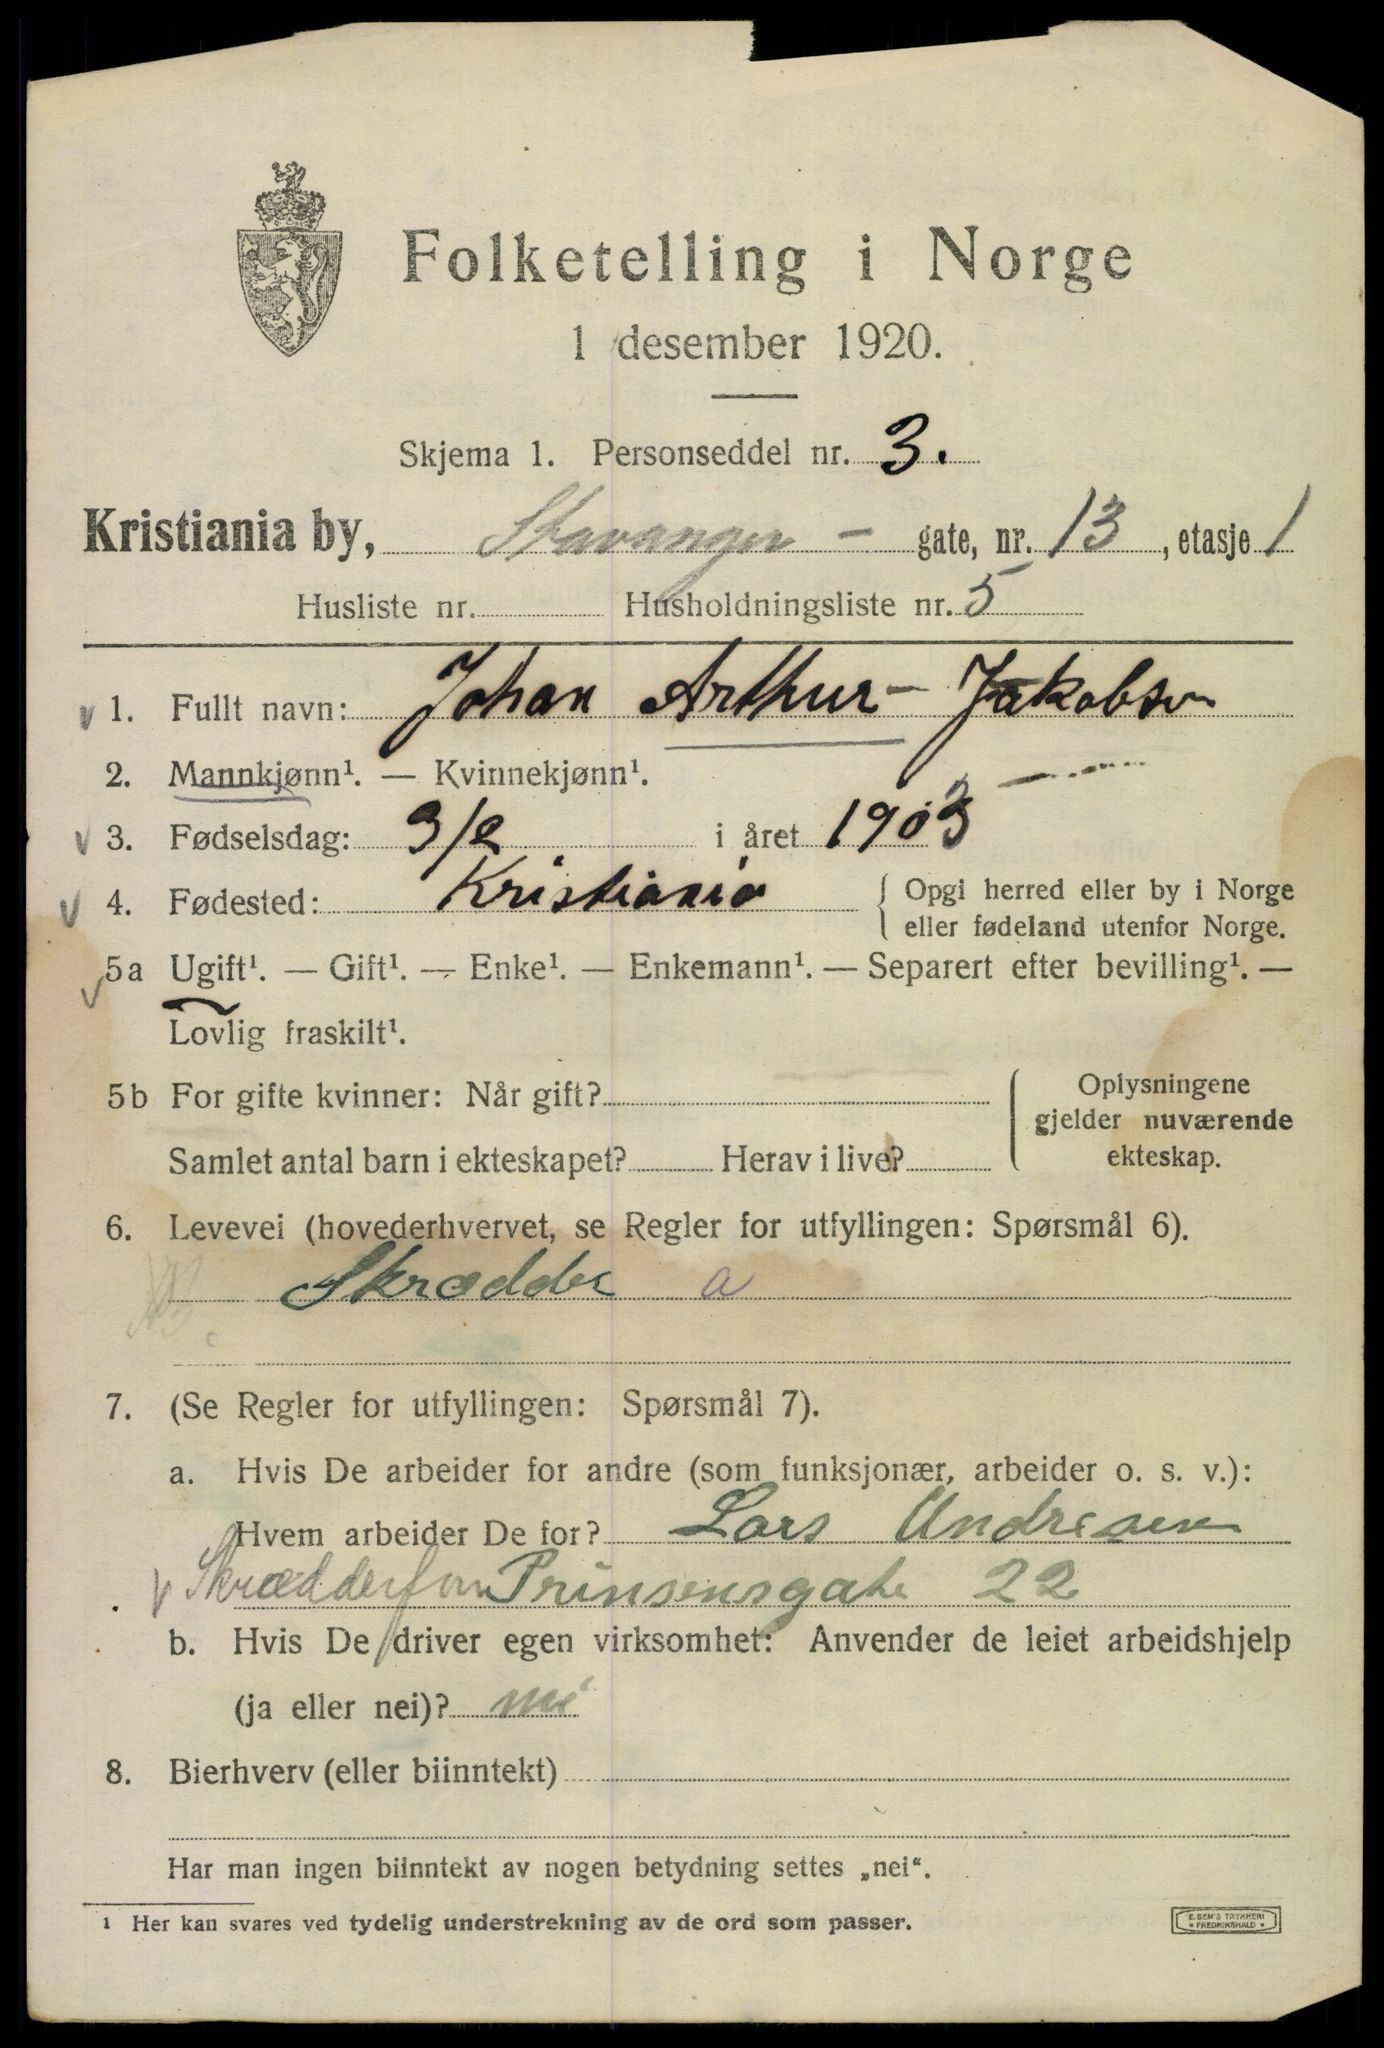 Folketelling i Norge
1 desember 1920.
Skjema 1. Personseddel nr. 3.
Kristiania by, Stavanger - gate, nr. 13, etasje 1
Husliste nr. Husholdningsliste nr. 5
1. Fullt navn: Johan Arthur Jakobsen
2. Mannkjønn¹. — Kvinnekjønn¹.
3. Fødselsdag: 3/2 i året 1903
4. Fødested: Kristiania { Opgi herred eller by i Norge
eller fødeland utenfor Norge.
5a Ugift¹. — Gift¹. — Enke¹. — Enkemann¹. — Separert efter bevilling¹. —
Lovlig fraskilt¹.
5b For gifte kvinner: Når gift? Oplysningene
gjelder nuværende
Samlet antal barn i ekteskapet? Herav i live? ekteskap.
6. Levevei (hovederhvervet, se Regler for utfyllingen: Spørsmål 6).
Skrædder a
7. (Se Regler for utfyllingen: Spørsmål 7).
a. Hvis De arbeider for andre (som funksjonær, arbeider o. s. v.):
Hvem arbeider De for? Lars Andresen
Prinsensgate 22
b. Hvis De driver egen virksomhet: Anvender de leiet arbeidshjelp
(ja eller nei)? nei
8. Bierhverv (eller biinntekt)
Har man ingen biinntekt av nogen betydning settes „nei“.
¹ Her kan svares ved tydelig understrekning av de ord som passer.
E. SEM'S TRYKKERI
• FREDRIKSHALD •